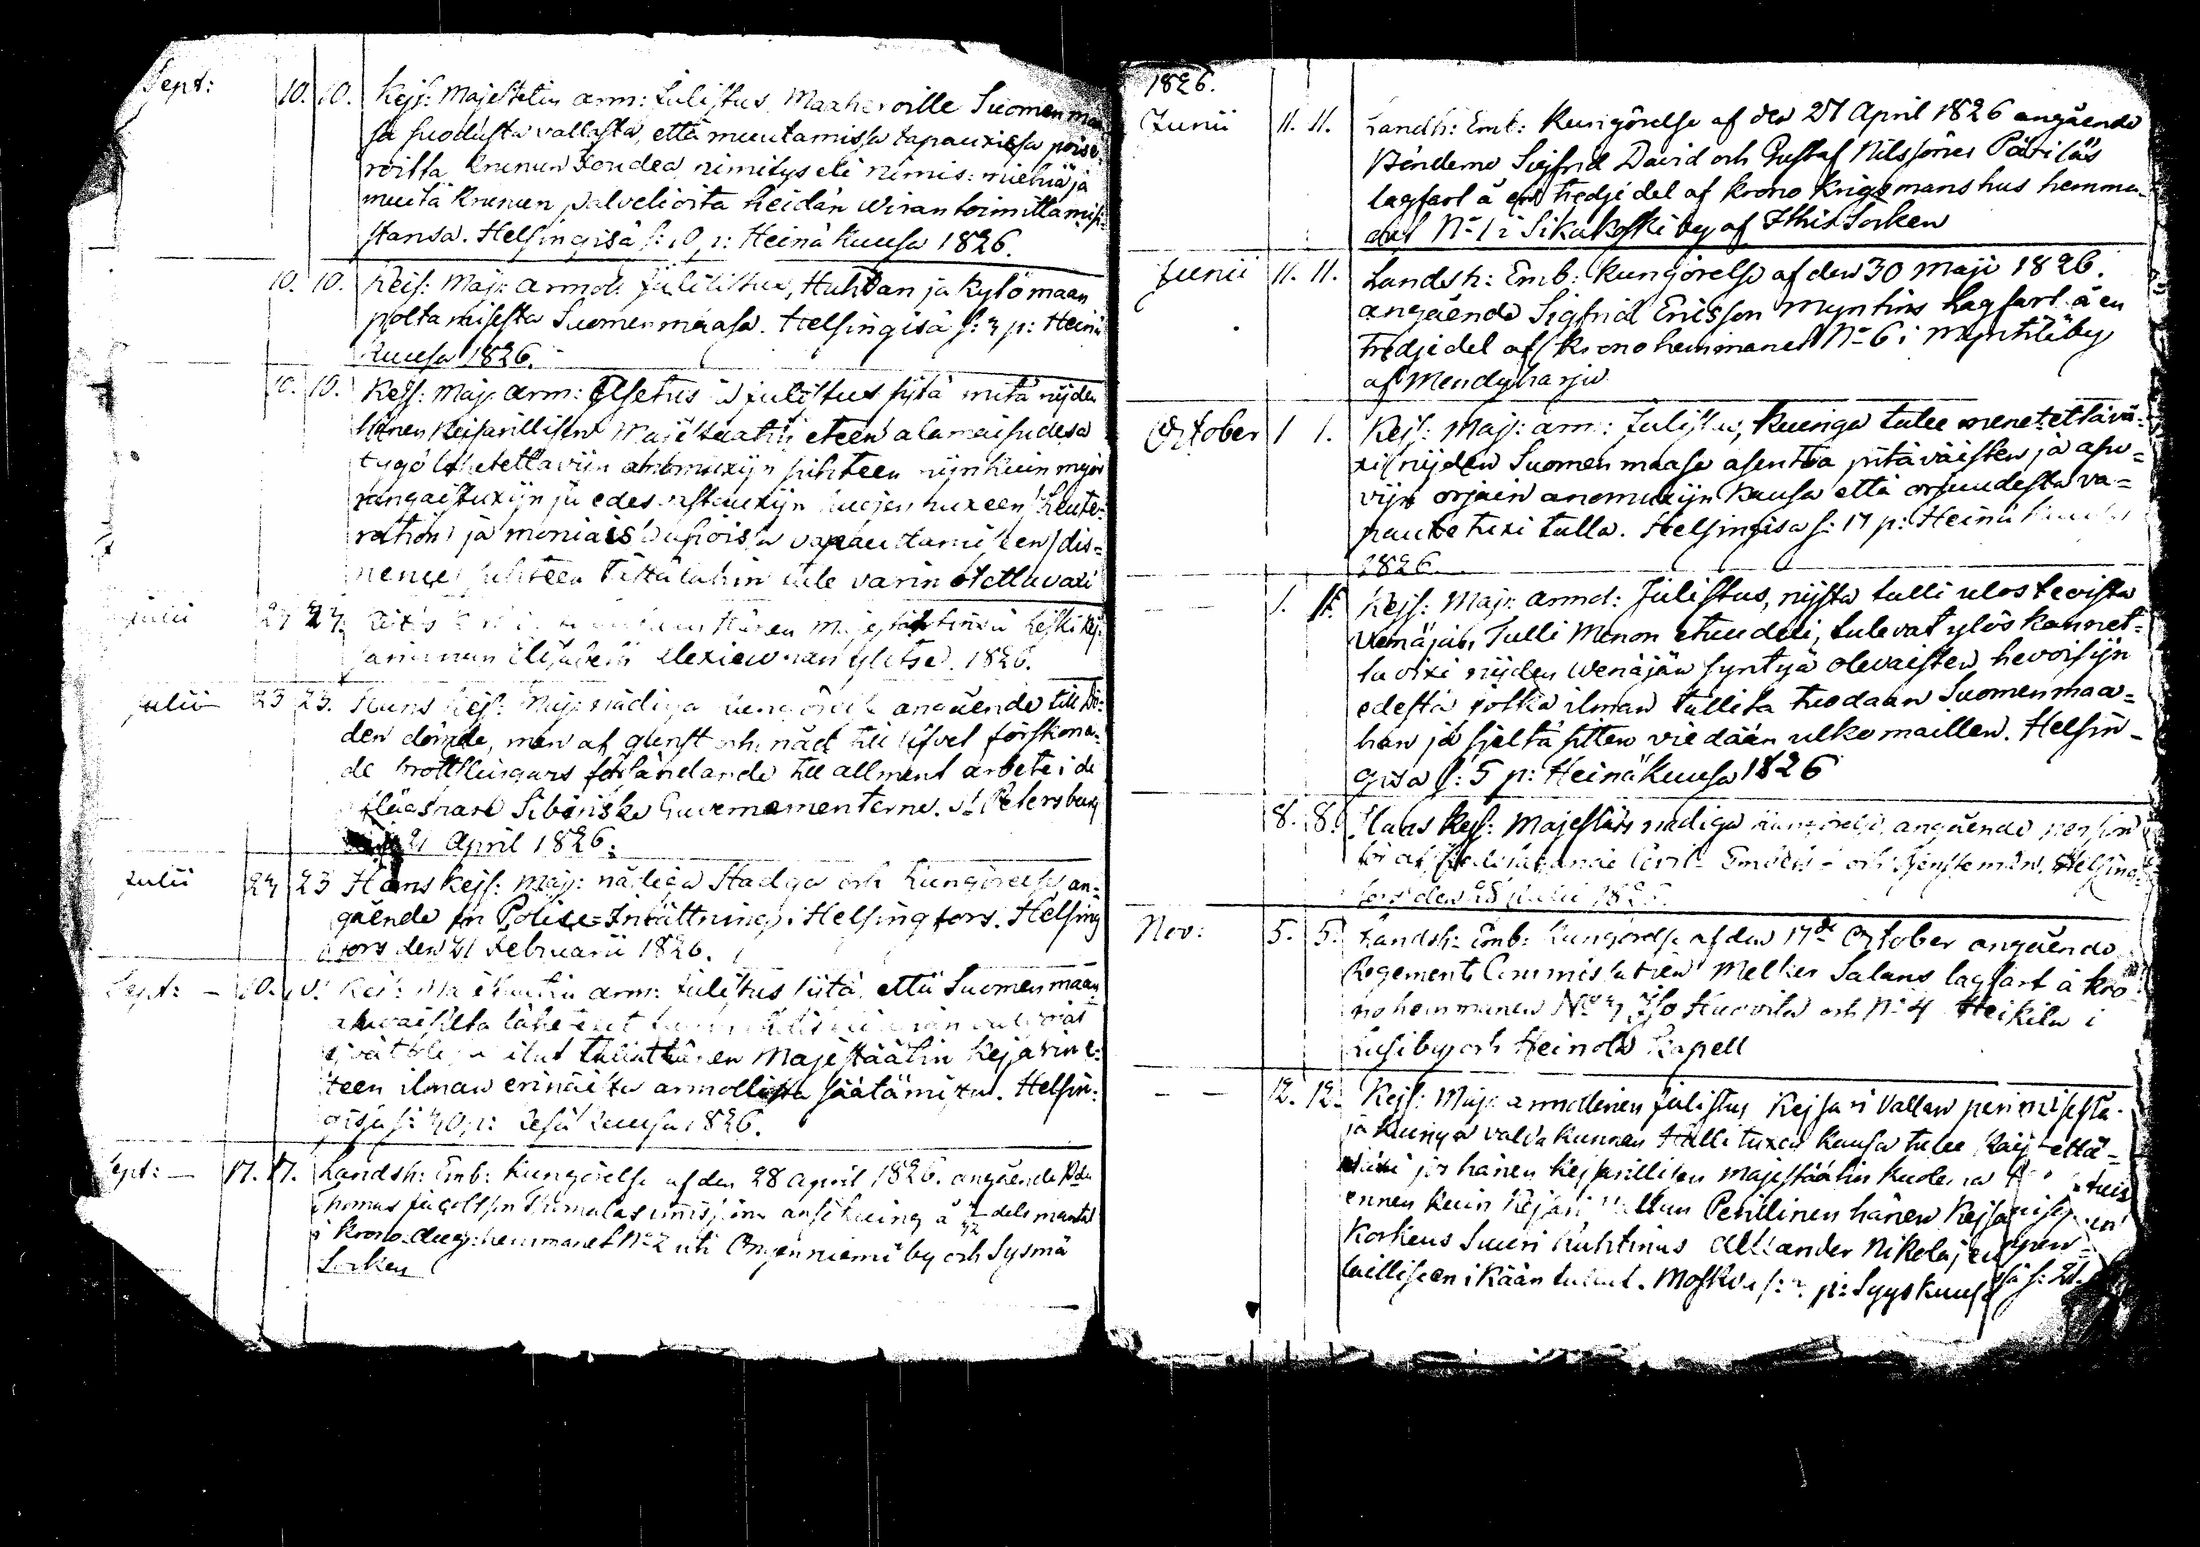 Sept: 10. 10. Kejs: Majestetin arm: Julistus Maaherroille Suomenmaa
sa suodusta vallasta, että muutamissa tapauxissa poise
roitta krunun Foudea, nimitys eli nimis: miehiä ja
muita krunun palvelioita heidän Wiran toimittamis:
stansa. Helsingisä s: 10 p: Heinä Kuusa 1826.
10. 10. Keis: Maj: armol: Julistus, Huhdan ja Kytömaan
polttamisesta Suomenmaasa. Helsingisä s: 3 p: Heinä
Kuusa 1826.
10. 10. Kejs: Maj: Arm: Asetus ja julistus siitä mitä nijden
hänen Keisarillisen Majestaatin eteen alamaisudesa
tygö lähetettäviin anomuxijn suhteen nijnkuin myös
rangaistuxijn ja edesvastauxijn huojennuxeen /Leute-
ration/ ja moniaisa asioisa vapauttamiseen /dis-
pence/ suhteen tästälähin tule varin otettavaxi
Julii 23 23. Hänen Majestätinsä Leski Kej-
sarinnan Elisabeth Alexiewnan ylitse. 1826.
Julii 23 23. Hans Kejs: Maj: nådiga kungörelse angående till dö-
den dömde, men af gunst och nåd till lifvet förskona-
de brottslingars försändande till allment arbete i de
aflägsnare Sibiriske Guvernementerne. St Petersburg
21 April 1826.
Julii 23 23 Hans Kejs: Maj: nådiga Stadga och Kungörelse, an-
gående en Police-Inrättning i Helsingfors. Helsing
fors den 21 Februarii 1826.
Sept: - 10. 10. Kejs: Majestätin arm: Julistus siitä, että Suomenmaan
asuvaisilta lähetetyt
tullut hänen Majestäätin Kejsarin e-
teen ilman erinäistä armollista säätämistä. Helsin-
gisä s: 30 p: Kesä Kuusa 1826.
Sept: - 17. 17. Landsh: Emb: Kungörelse af den 28 April 1826. angående
Thomas ansökning å 1/12 dels mantal
i krono hemmanet No 2 uti Onganniemi by och Sysmä
Socken
1826.
Junii 11. 11. Landsh: Emb: Kungörelse af den 27 April 1826 angående
Bönderne Sigfrid David och Gustaf Nilssöner Pärilås
lagfart å en tredjedel af krono Krigsmanshus hemma-
net No 1 i Sikakoski by af Ithis Socken
Junii 11. 11. Landsh: Emb: Kungörelse af den 30 Maji 1826.
angående Sigfrid Ericsson Myntins Lagfart å en
tredjedel af krono hemmanet No 6 i Myntilä by
af Mendyharju
October 1 1. Kejs: Maj: arm: Julistus, kuinga tulee menetettävä-
xi nijden Suomen maasa asentoa pitäväisten ja asu-
vijn orjain anomuxijn kansa että orjuudesta va-
pautetuxi tulla. Helsingisä s: 17 p: Heinä Kuusa
1826.
1. 1. Kejs: Maj: armol: Julistus, nijstä tulli ulosteoista
Venäjän Tulli Monon etuudexi, tulevat ylös kannet-
tavixi nijden Wenäjän syntyä olevaisten hevoisijn
edestä jotka ilman tullita tuodaan Suomenmaa-
han ja sieltä sitten viedään ulko maillen. Helsin-
gisä s: 5 p: Heinäkuusa 1826
8. 8. Hans Kejs: Majestäts nådiga kungörelse, angående pension
för afskedstagande Civil- Embets- och Tjenstemän. Helsing-
fors den 28 Julii 1826.
Nov: 5. 5. Landsh: Emb: Kungörelse af den 17de October angående
Regements Commissarien Melker Salans lagfart å kro-
nohemmanen No 3 Iso Huovila och No 4 Heikilä i
Lusi by och Heinola Kapell
12. 12. Kejs: Maj: armollinen Julistus Kejsari Vallan perimisestä
ja kuinga valdakunnan Hallituxen kansa tulee käytettä-
växi jos hänen Kejsarillisen Majestäätin kuolema
ennen kuin Kejsari Vallan Perillinen hänen Kejsarillinen
Korkeus Suuri Ruhtinas Alexander Nikolajewitsch
lailliseen ikään tullut. Moskva s: p: Syyskuusa